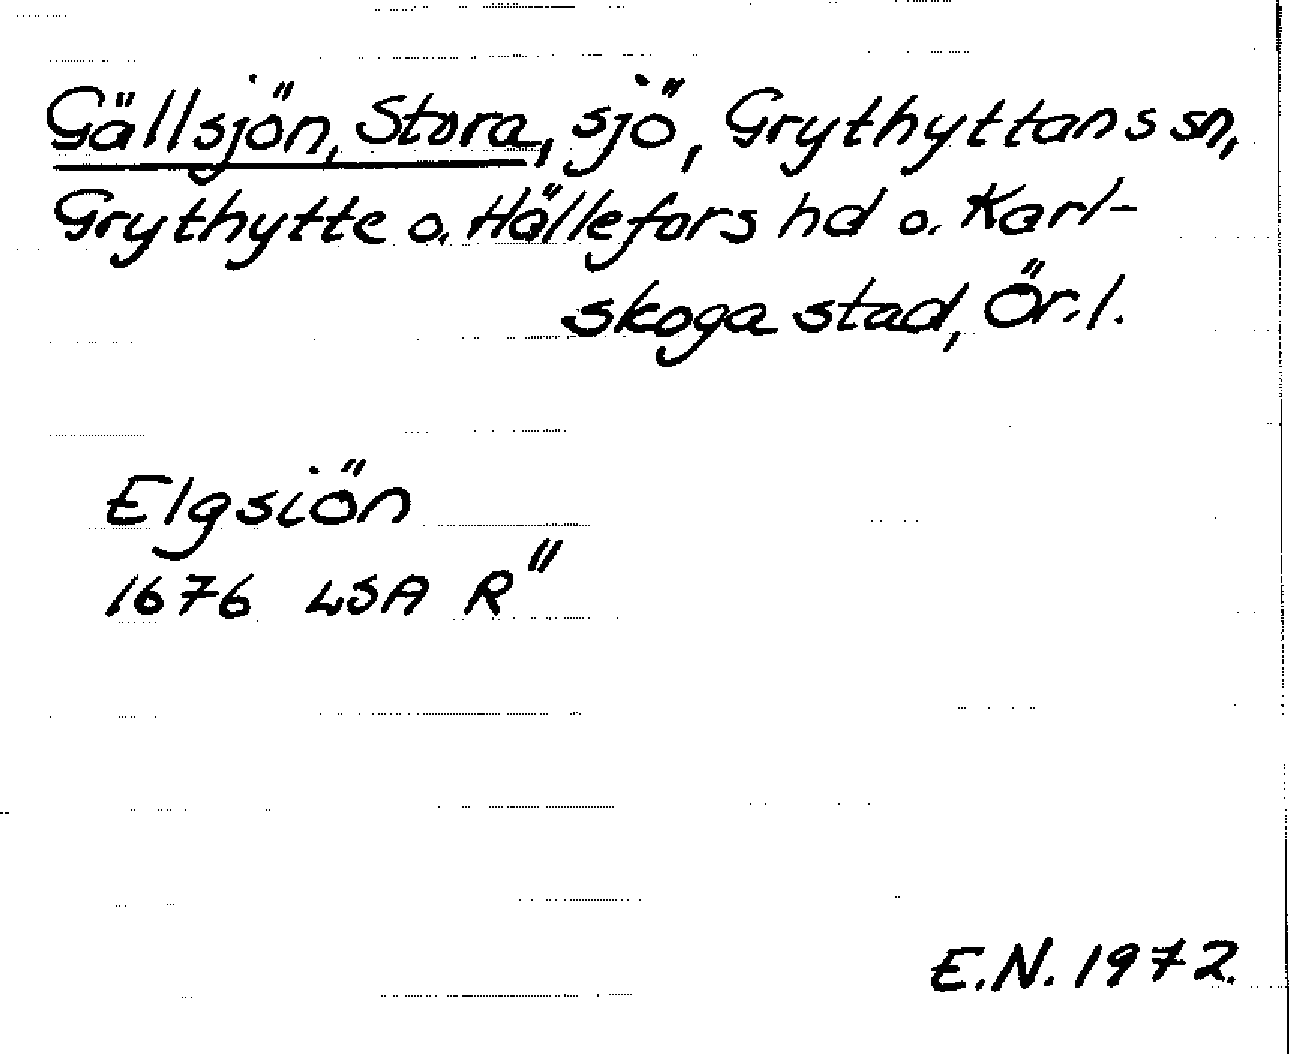 Gällsjön, Stora, sjö, Grythyttans sn,
Grythytte o. Hällefors hd o. Karl-
skoga stad, Ör. l.
Elgsiön
1676 LSA R"
E.N. 1972.